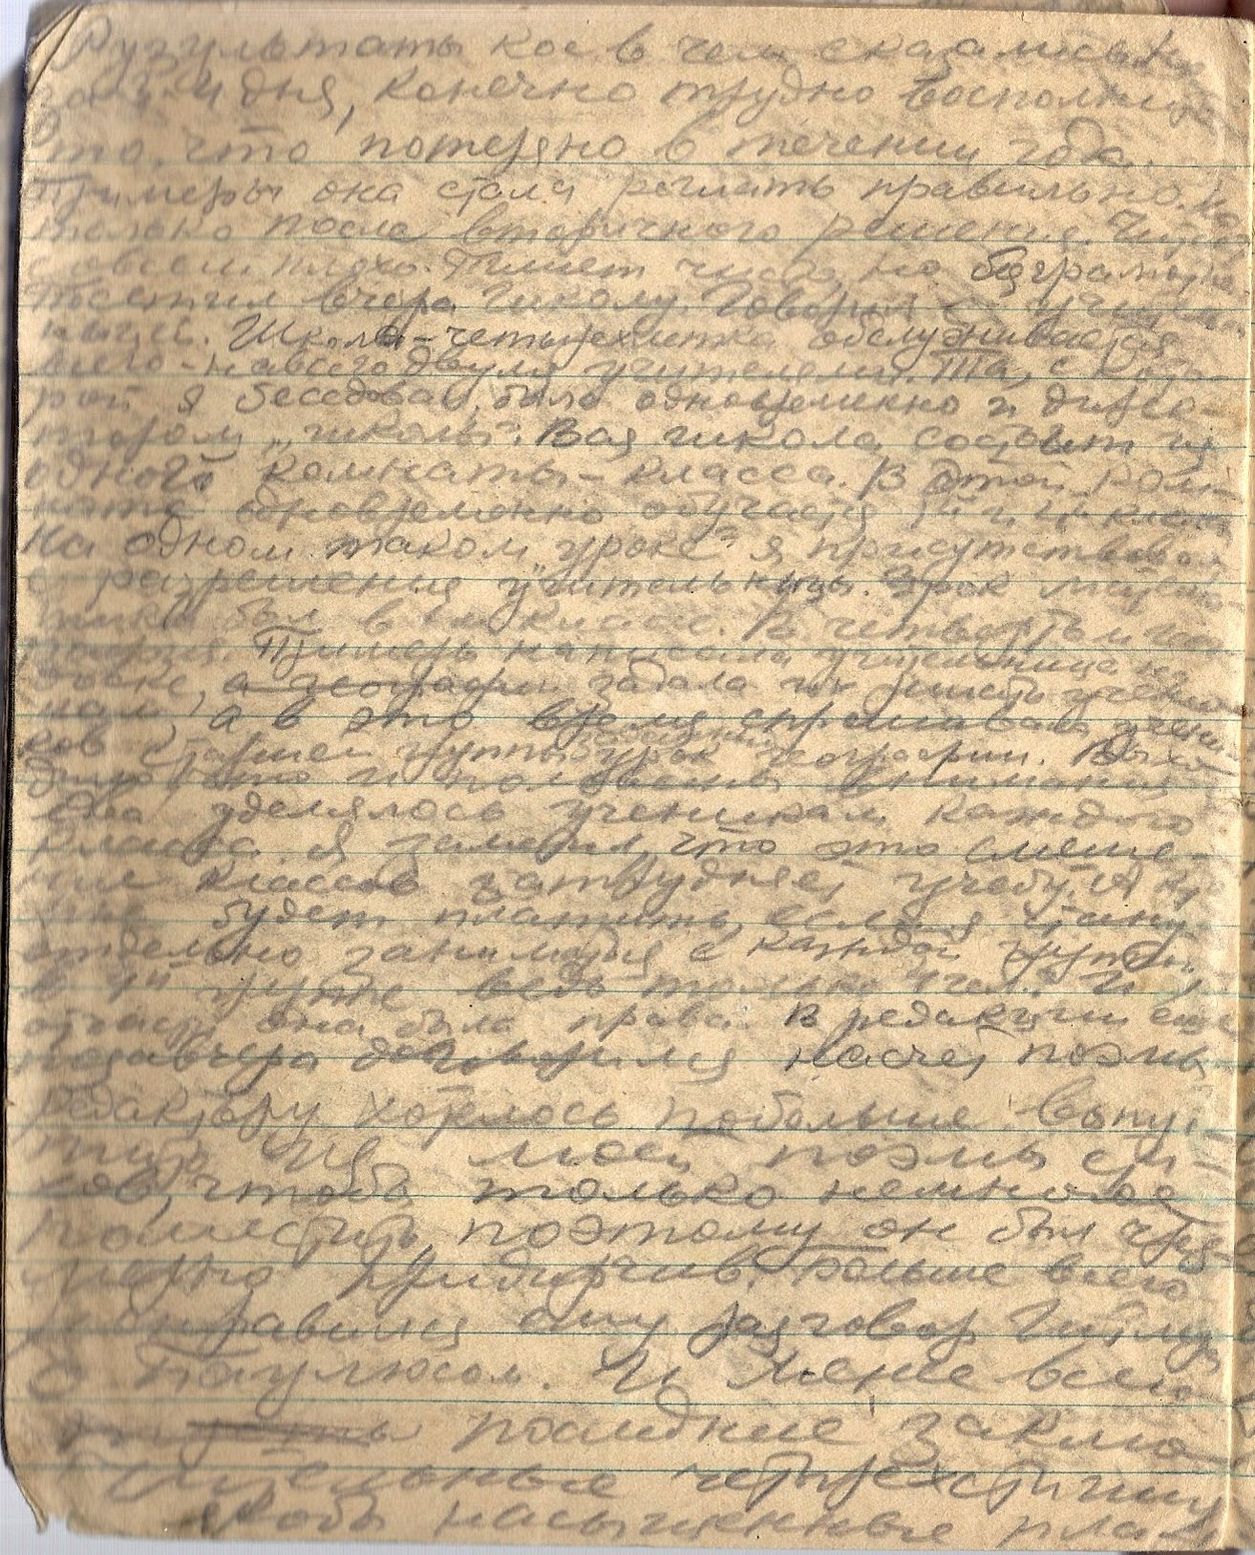 Рузультаты кое в чем сказались
за 3-4 дня, конечно трудно восполнить
то, что потеряно в течении года.
Примеры она стала решать правильно, но
только после вторичного решения. Читает
совсем плохо. Пишет чисто, но безграмотно
Посетил вчера школу. Говорил с учитель-
ницей. Школа-четырехлетка обслуживается
всего-навсего двумя учителями. Та, с кото-
рой я беседовал, была одновременно и дирек-
тором „школы". Вся школа состоит из
одной комнаты-класса. В этой ком-
нате одновременно обучается и классы
На одном таком „уроке" я присутствовал
с разрешения учительницы. Урок матема-
тики был в классе. В четвертом
Примеры написала учительница на
доске, а географии задала их решать учени-
кам, а в это время спрашивала учени-
ков старшей группы урок географии.
было, что и половины внимания
не уделялось ученикам каждого
класса. Я заметил, что это смеше-
ние классов затрудняет учебу. А кто
мне будет платить, если я стану
отдельно заниматься с каждой группой,
в группе ведь только чел." И
отчасти она была права. В редакции еще
позавчера договорился насчет поэмы
Редактору хотелось побольше выпус-
тить из моей поэмы сти-
хов, чтобы только немногое
поместить, поэтому он был чрез-
мерно придирчив. Больше всего
не нравился ему разговор Гитлера
с Паулюсом. И менее всего
последние заклю-
чительные четверостишия
якобы насыщенные пла-